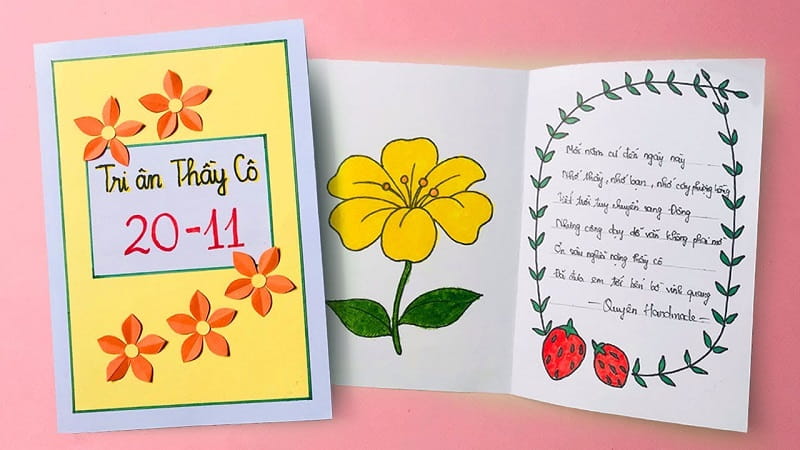 Tri ân Thầy Cô
20-11
Mỗi năm cứ đến ngày này
Nhớ thầy, nhớ bạn, nhớ cây phượng hồng
Tiết trời tuy chuyển sang Đông
Nhưng công dạy dỗ vẫn không phai mờ
Ơn sâu nghĩa nặng thầy cô
Đã đưa em tới bến bờ vinh quang
Quyên Handmade